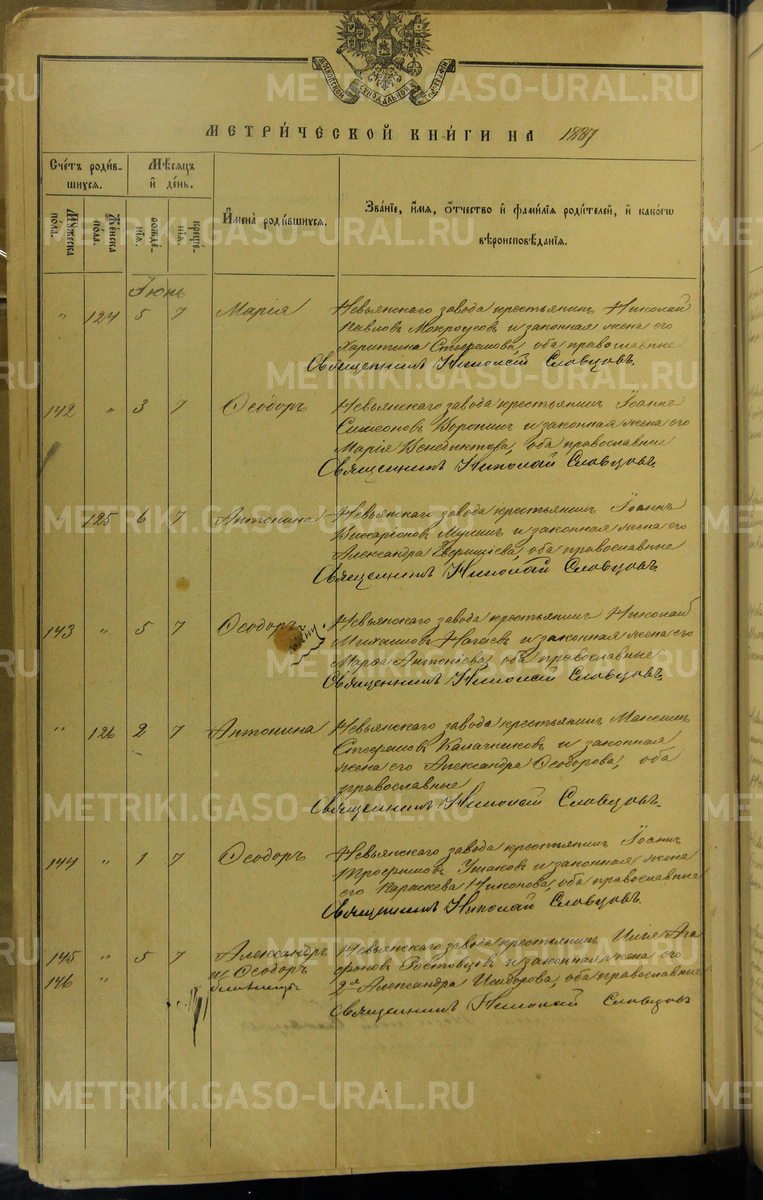 МОСКОВСКОЙ СѴНОДАЛЬНОЙ
METRIKI.GASO-URAL.RU
МЕТРИ́ЧЕСКОЙ КНИ́ГИ НА 1887
Сче́тъ роди́в-
шихся.
Мѣ́сяцъ
и҆ де́нь.
Му́жеска
по́ла.
Же́нска
по́ла.
рожде́-
нїѧ.
креще́-
нїѧ.
И҆мена̀ роди́вшихся.
Зва́нїе, и҆́мѧ, ѻ҆́тчество и҆ фами́лїѧ роди́телей, и҆ како́гѡ
вѣроисповѣ́данїѧ.
Іюнь
" 124 5 7 Марія Невьянскаго завода крестьянинъ Николай
Павловъ Мокроусовъ и законная жена его
Харитина Стефанова, оба православные
Священникъ Николай Словцовъ.
142 " 3 7 Ѳеодоръ Невьянскаго завода крестьянинъ Іоаннъ
Симеоновъ Доронинъ и законная жена его
Марія Венедиктова, оба православные
Священникъ Николай Словцовъ.
" 125 6 7 Антонина Невьянскаго завода крестьянинъ Іоаннъ
Виссаріоновъ Мунинъ и законная жена его
Александра, оба православные
Священникъ Николай Словцовъ
143 " 5 7 Ѳеодоръ Невьянскаго завода крестьянинъ Николай
Михаиловъ Нагаевъ и законная жена его
Марѳа Антоніева, оба православные
Священникъ Николай Словцовъ.
" 126 2 7 Антонина Невьянскаго завода крестьянинъ Максимъ
Стефановъ Калачниковъ и законная
жена его Александра Ѳеодорова, оба
православные
Священникъ Николай Словцовъ.
144 " 1 7 Ѳеодоръ Невьянскаго завода крестьянинъ Іоаннъ
Трофимовъ Ушаковъ и законная жена
его Параскева Никонова, оба православные
Священникъ Николай Словцовъ.
145 " 5 7 Александръ Невьянскаго завода крестьянинъ Илья Ага
146 " и Ѳеодоръ фоновъ Ростовцовъ и законная жена его
близнецы 2я Александра Исидорова, оба православные
Священникъ Николай Словцовъ